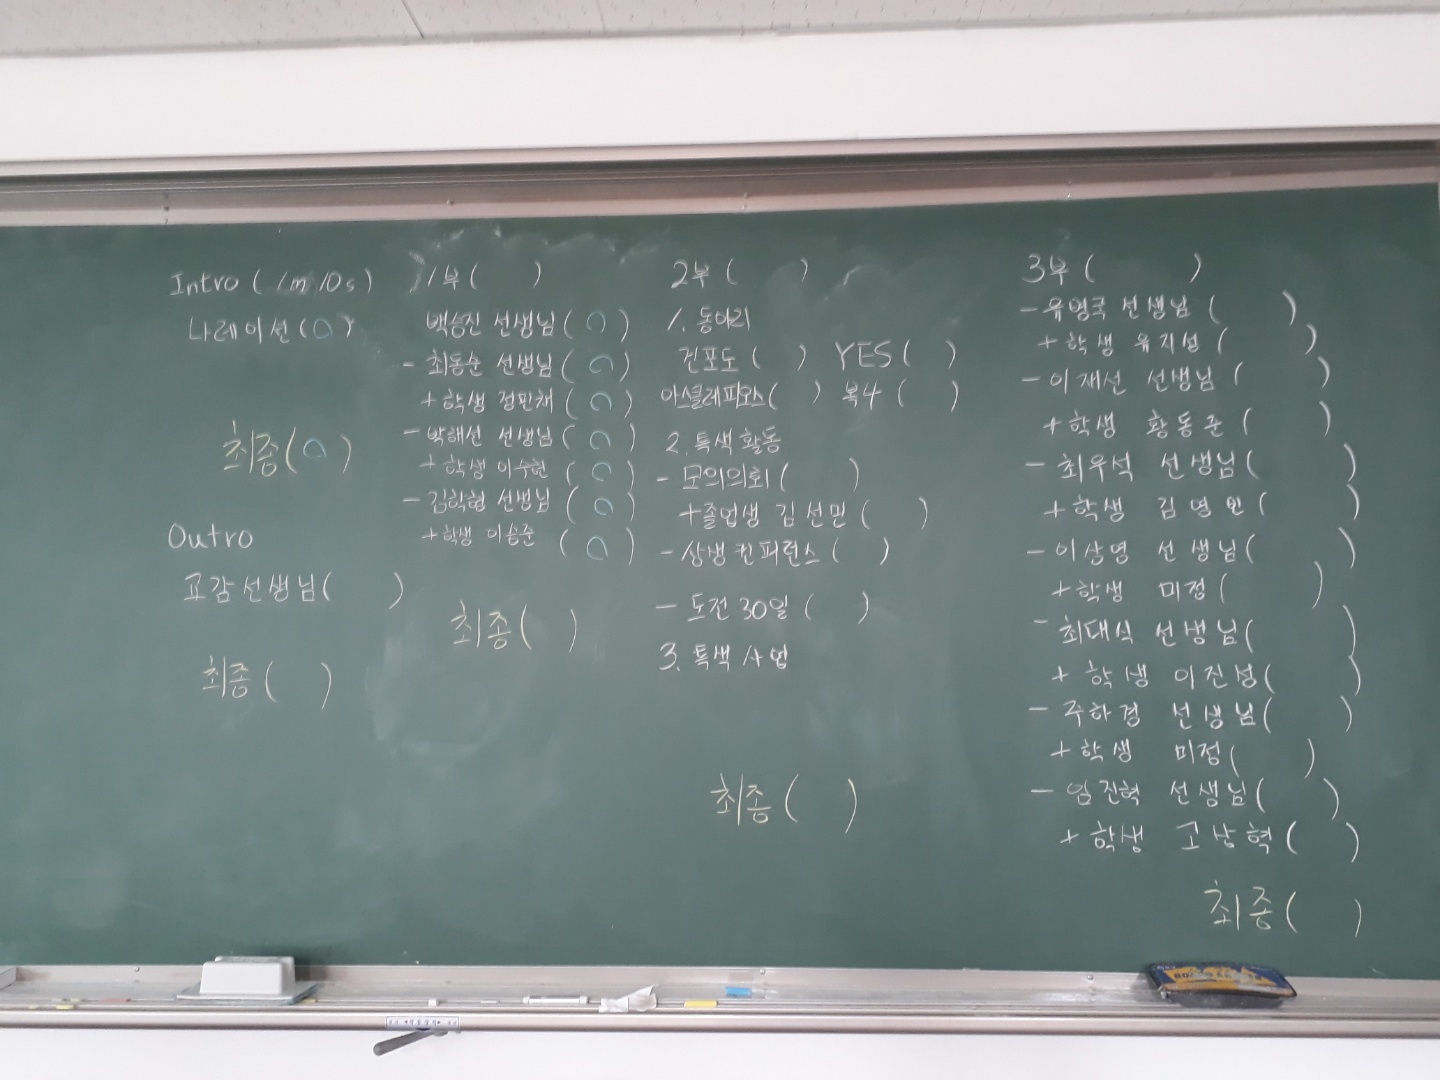 Intro ( 1m 10s )
나레이션 ( O )
최종 ( O )
Outro
교감선생님 ( )
최종 ( )
1부 ( )
백승진 선생님 ( O )
- 최동순 선생님 ( O )
+ 학생 정민채 ( O )
- 박해선 선생님 ( O )
+ 학생 이수현 ( O )
- 김학형 선생님 ( O )
+ 학생 이승준 ( O )
최종 ( )
2부 ( )
1. 동아리
진포도 ( ) YES ( )
아스클레피오스 ( ) 복4 ( )
2. 특색 활동
- 모의의회 ( )
+ 졸업생 김선민 ( )
- 상생 컨퍼런스 ( )
- 도전 30일 ( )
3. 특색 사업
최종 ( )
3부 ( )
- 유영국 선생님 ( )
+ 학생 유지성 ( )
- 이재선 선생님 ( )
+ 학생 황동준 ( )
- 최우석 선생님 ( )
+ 학생 김영인 ( )
- 이상영 선생님 ( )
+ 학생 미정 ( )
- 최대식 선생님 ( )
+ 학생 이진성 ( )
- 주하경 선생님 ( )
+ 학생 미정 ( )
- 임진혁 선생님 ( )
+ 학생 고상혁 ( )
최종 ( )